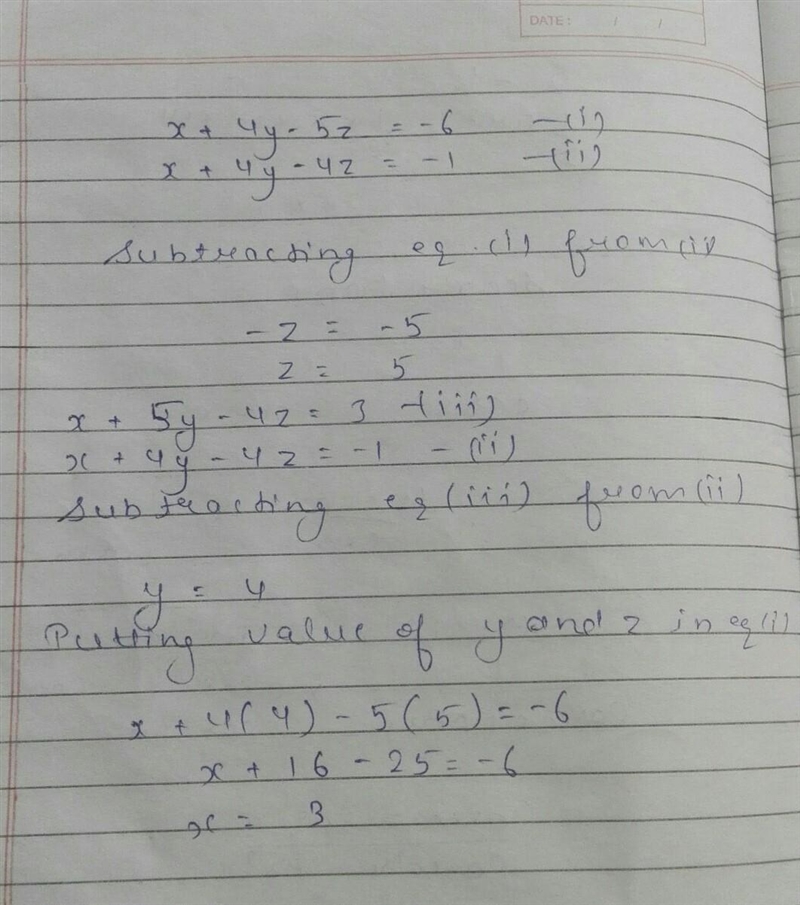 DATE: / /
x + 4y - 5z = -6 —(i)
x + 4y - 4z = -1 —(ii)
Subtracting eq.(i) from (i)
-z = -5
z = 5
x + 5y - 4z = 3 -(iii)
x + 4y - 4z = -1 - (ii)
Subtracting eq (iii) from (ii)
y = 4
Putting value of y and z in eq(i)
x + 4(4) - 5(5) = -6
x + 16 - 25 = -6
x = 3